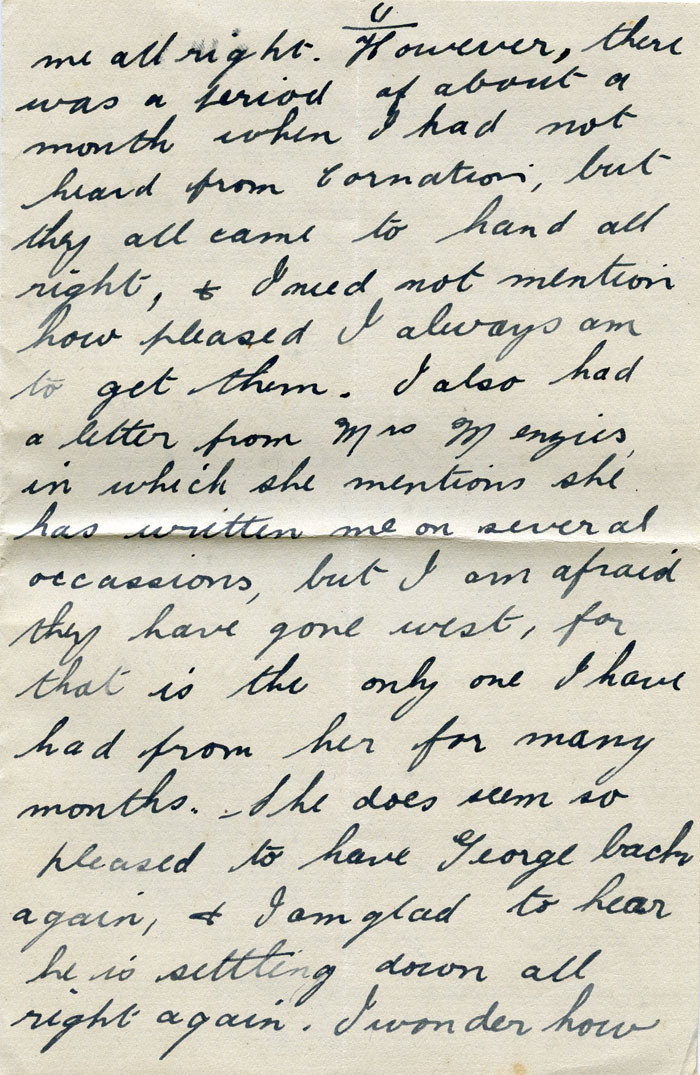 me all right. However, there
was a period of about a
month when I had not
heard from Cornation, but
they all came to hand all
right, & I need not mention
how pleased I always am
to get them. I also had
a letter from Mrs Menzies,
in which she mentions she
has written me on several
occassions, but I am afraid
they have gone west, for
that is the only one I have
had from her for many
months. She does seem so
pleased to have George back
again, & I am glad to hear
he is settling down all
right again. I wonder how